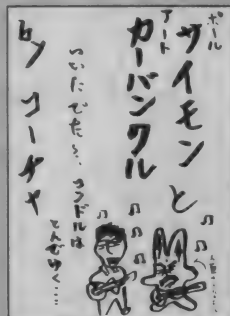 ポール
サイモンと
アート
カーバンクル
いいたでた〜、コンドルは
とんでゆく……
by コーチャ